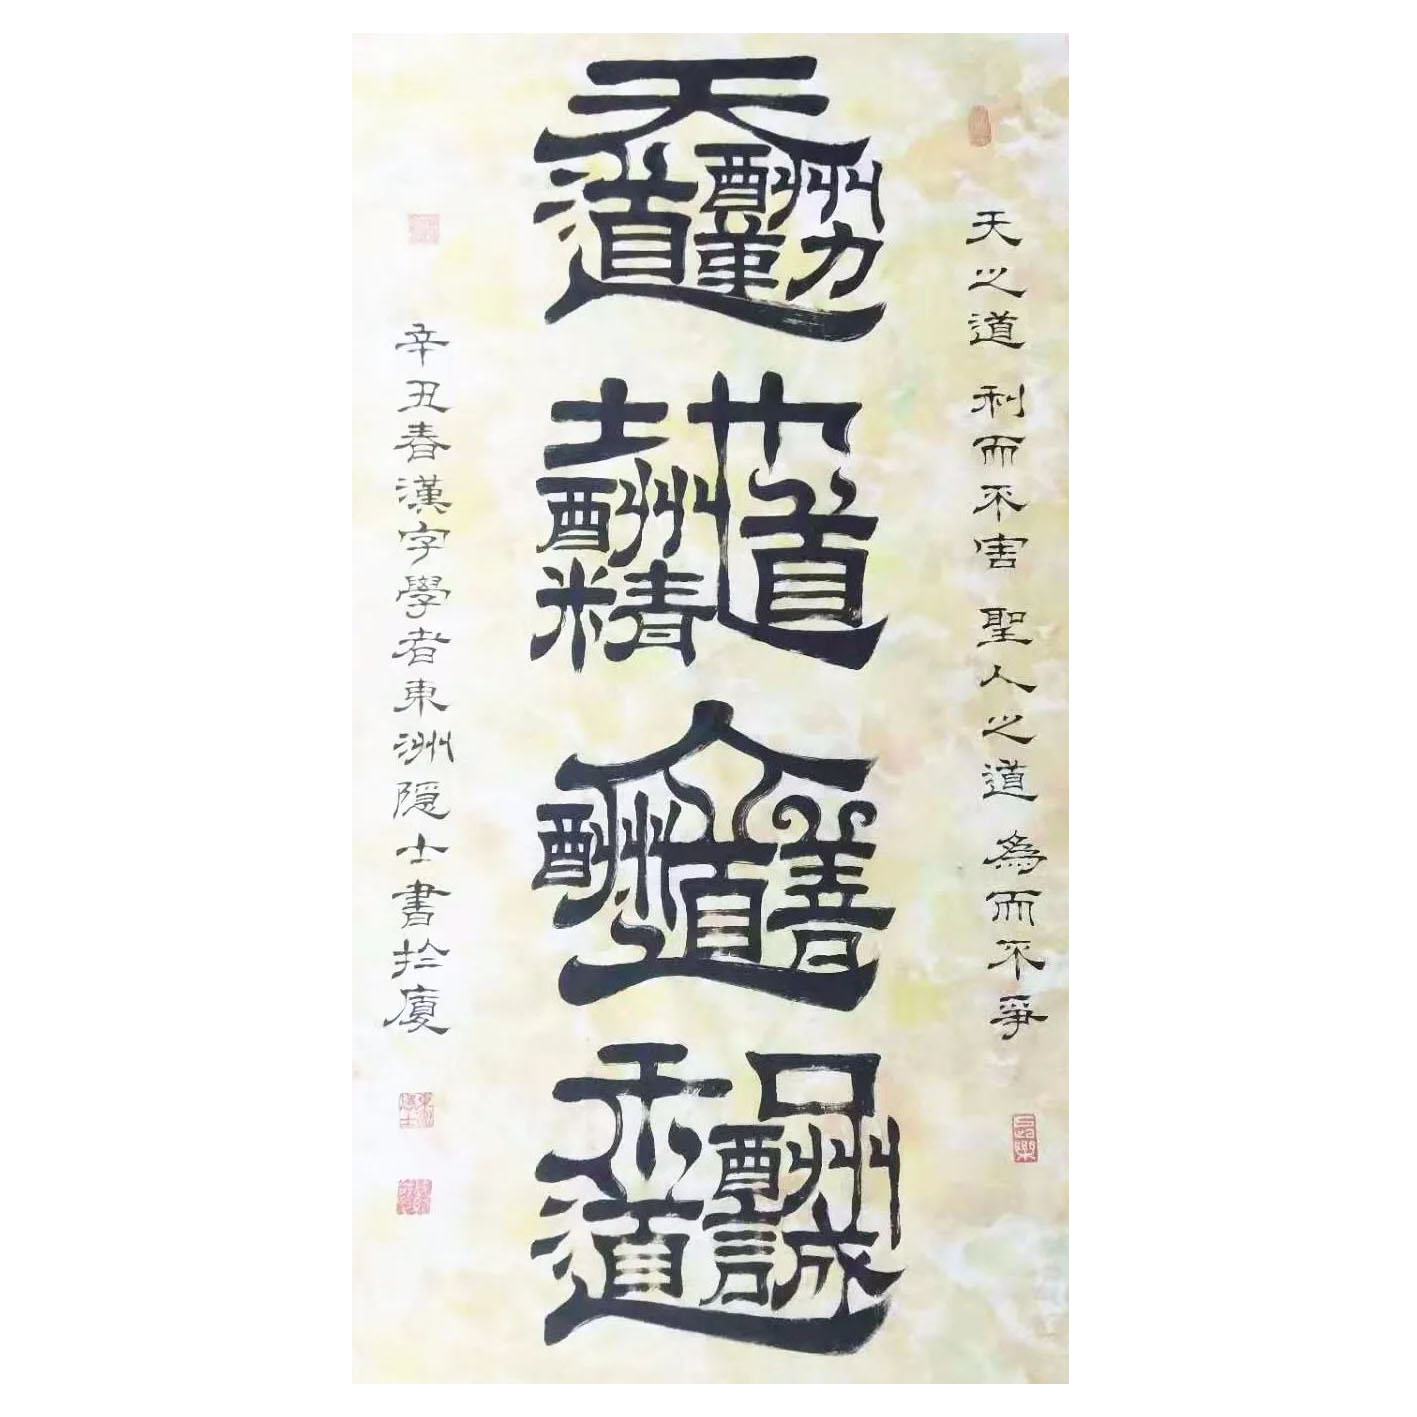 天之道 利而不害 聖人之道 為而不爭
天道酬勤
地道酬精
人道酬善
和道酬誠
辛丑春漢字學者東洲隐士書扵廈